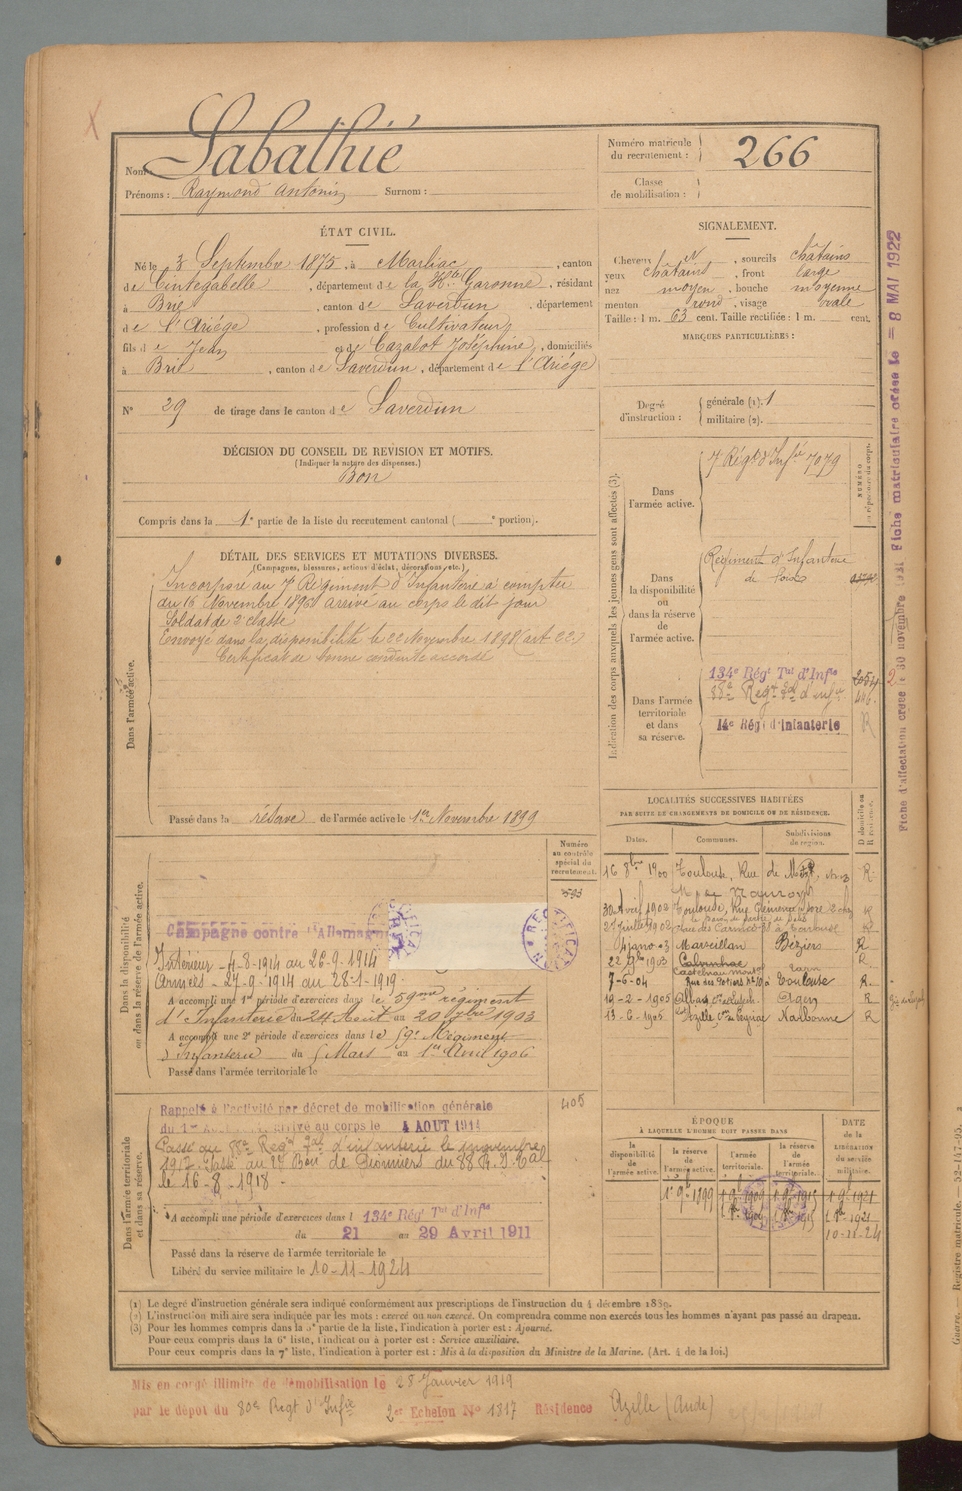 Nom : Labathié
Prénoms : Raymond Antonin Surnom :
Numéro matricule du recrutement : 266
Classe de mobilisation :
ÉTAT CIVIL.
Né le 3 Septembre 1875, à Marliac, canton
de Cintegabelle, département de la Hte Garonne, résidant
à Brie, canton de Saverdun, département
de l'Ariège, profession de Cultivateur,
fils de Jean et de Cazalot Joséphine, domiciliés
à Brie, canton de Saverdun, département de l'Ariège
N° 29 de tirage dans le canton de Saverdun
SIGNALEMENT.
Cheveux N, sourcils châtains
yeux châtains, front large
nez moyen, bouche moyenne
menton rond, visage ovale
Taille : 1 m. 63 cent. Taille rectifiée : 1 m. cent.
MARQUES PARTICULIÈRES :
Degré d'instruction :
générale (1). 1
militaire (2).
DÉCISION DU CONSEIL DE REVISION ET MOTIFS.
(Indiquer la nature des dispenses.)
Bon
Compris dans la 1e partie de la liste du recrutement cantonal ( e portion).
DÉTAIL DES SERVICES ET MUTATIONS DIVERSES.
(Campagnes, blessures, actions d'éclat, décorations, etc.)
Dans l'armée active.
Incorporé au 7e Régiment d'Infanterie à compter
du 16 Novembre 1896 arrivé au corps le dit jour
Soldat de 2e classe
Envoyé dans la disponibilité le 22 Novembre 1898 (art 22)
Certificat de bonne conduite accordé
Passé dans la réserve de l'armée active le 1er Novembre 1899
Indication des corps auxquels les jeunes gens sont affectés (3).
NUMÉRO au répertoire du corps.
Dans l'armée active.
7e Régt d'Infie 7079
Dans la disponibilité ou dans la réserve de l'armée active.
Régiment d'Infanterie
de Foix
Dans l'armée territoriale et dans sa réserve.
134e Régt Tal d'Infie
88e Regt Tal d'Infie
14e Régt d'Infanterie
R
LOCALITÉS SUCCESSIVES HABITÉES
PAR SUITE DE CHANGEMENTS DE DOMICILE OU DE RÉSIDENCE.
Dates. Communes. Subdivisions de région. D domicile ou R résidence.
16 8bre 1900 Toulouse, Rue de R
30 Avril 1902 Toulouse, Rue R
27 Juillet 1902 Place des Carmes à Toulouse R
4 janv 03 Marseillan Béziers R
22 9bre 1903 R
7-6-04 Rue des Potiers Toulouse R
19-2-1905 Agen R
13-6-1905 Azille Narbonne R
Dans la disponibilité ou dans la réserve de l'armée active.
Numéro au contrôle spécial du recrutement.
Campagne contre l'Allemagne
Intérieur - 4-8-1914 au 26-9-1914
Armées - 27-9-1914 au 28-1-1919
A accompli une 1re période d'exercices dans le 59me régiment
d'Infanterie du 24 Août au 20 7bre 1903
A accompli une 2e période d'exercices dans le 59e Régiment
d'Infanterie du 5 Mars au 1er Avril 1906
Passé dans l'armée territoriale le
Dans l'armée territoriale et dans sa réserve.
405
Rappelé à l'activité par décret de mobilisation générale
du 1er arrivé au corps le 4 AOUT 1914
Passé au 88e Regt Tal d'infanterie le novembre
1917. Passé au 27 Bon de Pionniers du 88 R.I.Tal
le 16-8-1918 -
A accompli une période d'exercices dans l 134e Régt Tal d'Infie
du 21 au 29 Avril 1911
Passé dans la réserve de l'armée territoriale le
Libéré du service militaire le 10-11-1924
ÉPOQUE
À LAQUELLE L'HOMME DOIT PASSER DANS
la disponibilité de l'armée active. la réserve de l'armée active. l'armée territoriale. la réserve de l'armée territoriale. DATE de la LIBÉRATION du service militaire.
1er 9bre 1899 1er 9bre 1909 1er 9bre 1915 1er 9bre 1921
10-11-24
(1) Le degré d'instruction générale sera indiqué conformément aux prescriptions de l'instruction du 4 décembre 1889.
(2) L'instruction militaire sera indiquée par les mots : exercé ou non exercé. On comprendra comme non exercés tous les hommes n'ayant pas passé au drapeau.
(3) Pour les hommes compris dans la 5e partie de la liste, l'indication à porter est : Ajourné.
Pour ceux compris dans la 6e liste, l'indicat on à porter est : Service auxiliaire.
Pour ceux compris dans la 7e liste, l'indication à porter est : Mis à la disposition du Ministre de la Marine. (Art. 4 de la loi.)
Mis en congé illimité de démobilisation le 28 Janvier 1919
par le dépot du 80e Regt d'Infie 2e Echelon N° 1317 Résidence Azille (Aude)
Fiche d'affectation créée le 30 novembre 1921 Fiche matriculaire créée le = 8 MAI 1922